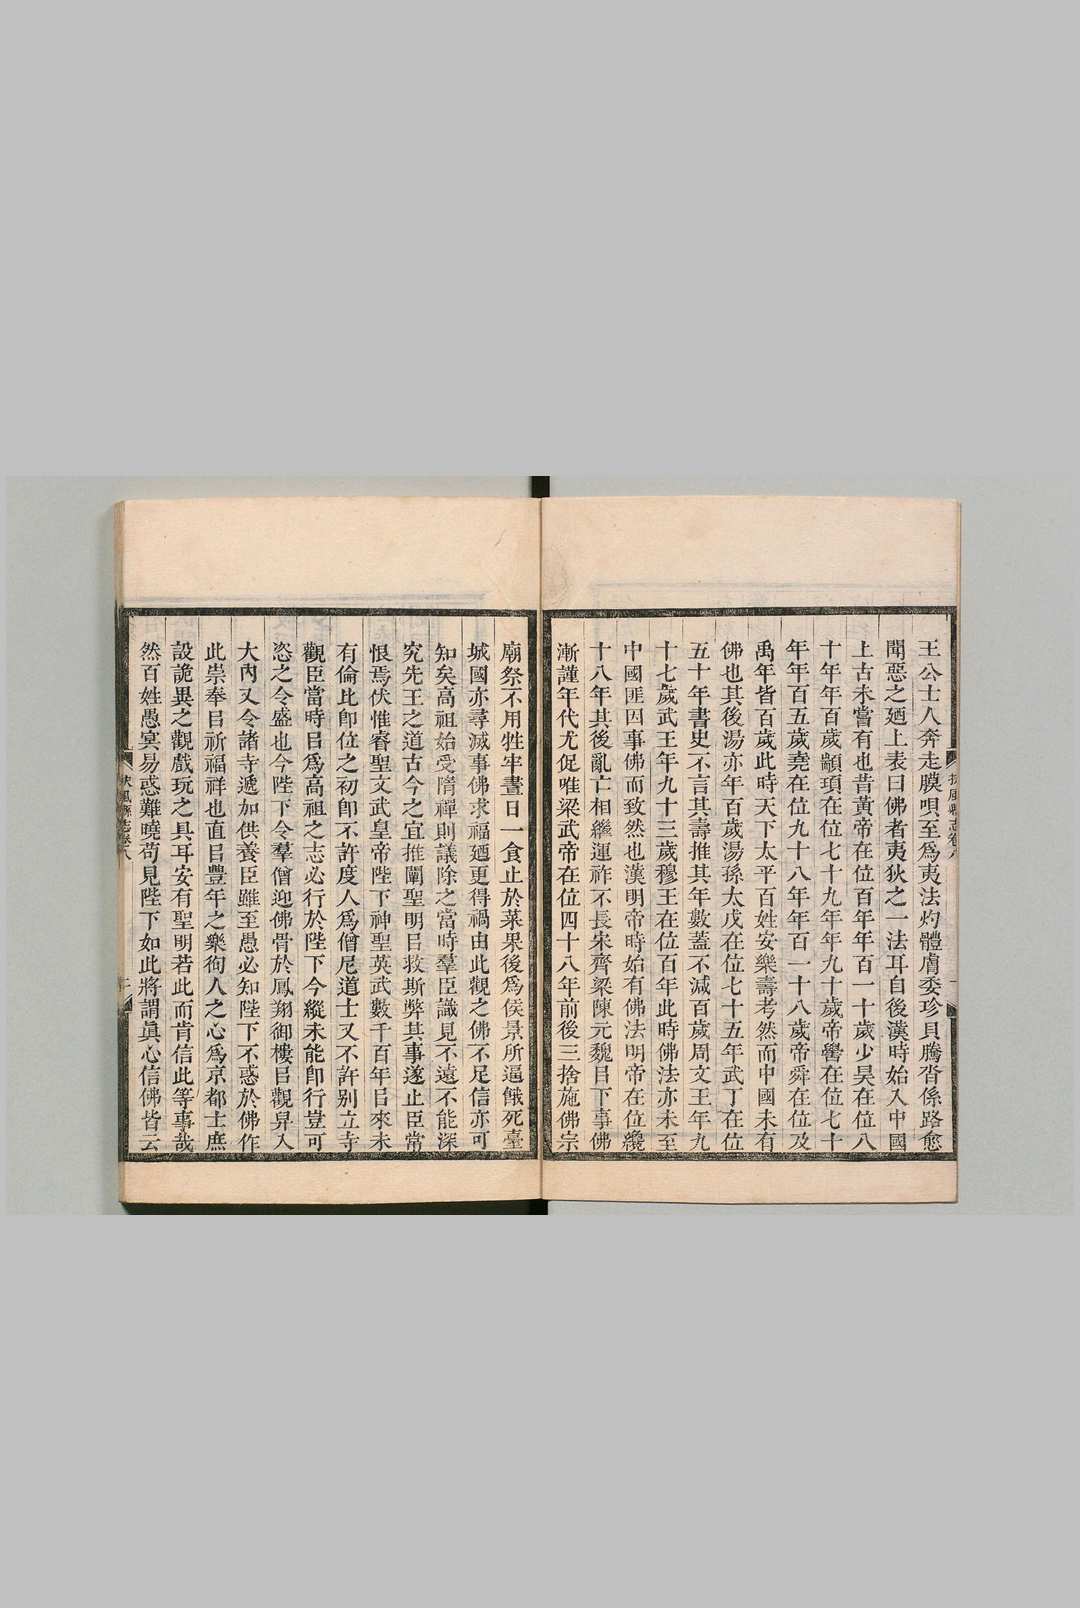 王公士人奔走膜唄至爲夷法灼體膚委珍貝騰沓係路愈
聞惡之廼上表曰佛者夷狄之一法耳自後漢時始入中國
上古未嘗有也昔黃帝在位百年年百一十歲少昊在位八
十年年百歲顓頊在位七十九年年九十歲帝嚳在位七十
年年百五歲堯在位九十八年年百一十八歲帝舜在位及
禹年皆百歲此時天下太平百姓安樂壽考然而中國未有
佛也其後湯亦年百歲湯孫太戊在位七十五年武丁在位
五十年書史不言其壽推其年數蓋不減百歲周文王年九
十七歲武王年九十三歲穆王在位百年此時佛法亦未至
中國匪因事佛而致然也漢明帝時始有佛法明帝在位纔
十八年其後亂亡相繼運祚不長宋齊梁陳元魏㠯下事佛
漸謹年代尤促唯梁武帝在位四十八年前後三捨施佛宗
廟祭不用牲牢晝日一食止於菜果後爲侯景所逼餓死臺
城國亦尋滅事佛求福廼更得禍由此觀之佛不足信亦可
知矣高祖始受隋禪則議除之當時羣臣識見不遠不能深
究先王之道古今之宜推闡聖明㠯救斯弊其事遂止臣常
恨焉伏惟睿聖文武皇帝陛下神聖英武數千百年㠯來未
有倫比卽位之初卽不許度人爲僧尼道士又不許別立寺
觀臣當時㠯爲高祖之志必行於陛下今縱未能卽行豈可
恣之令盛也今陛下令羣僧迎佛骨於鳳翔御樓㠯觀昇入
大內又令諸寺遞加供養臣雖至愚必知陛下不惑於佛作
此崇奉㠯祈福祥也直㠯豐年之樂徇人之心爲京都士庶
設詭異之觀戲玩之具耳安有聖明若此而肯信此等事哉
然百姓愚冥易惑難曉苟見陛下如此將謂眞心信佛皆云
扶風縣志卷八
二